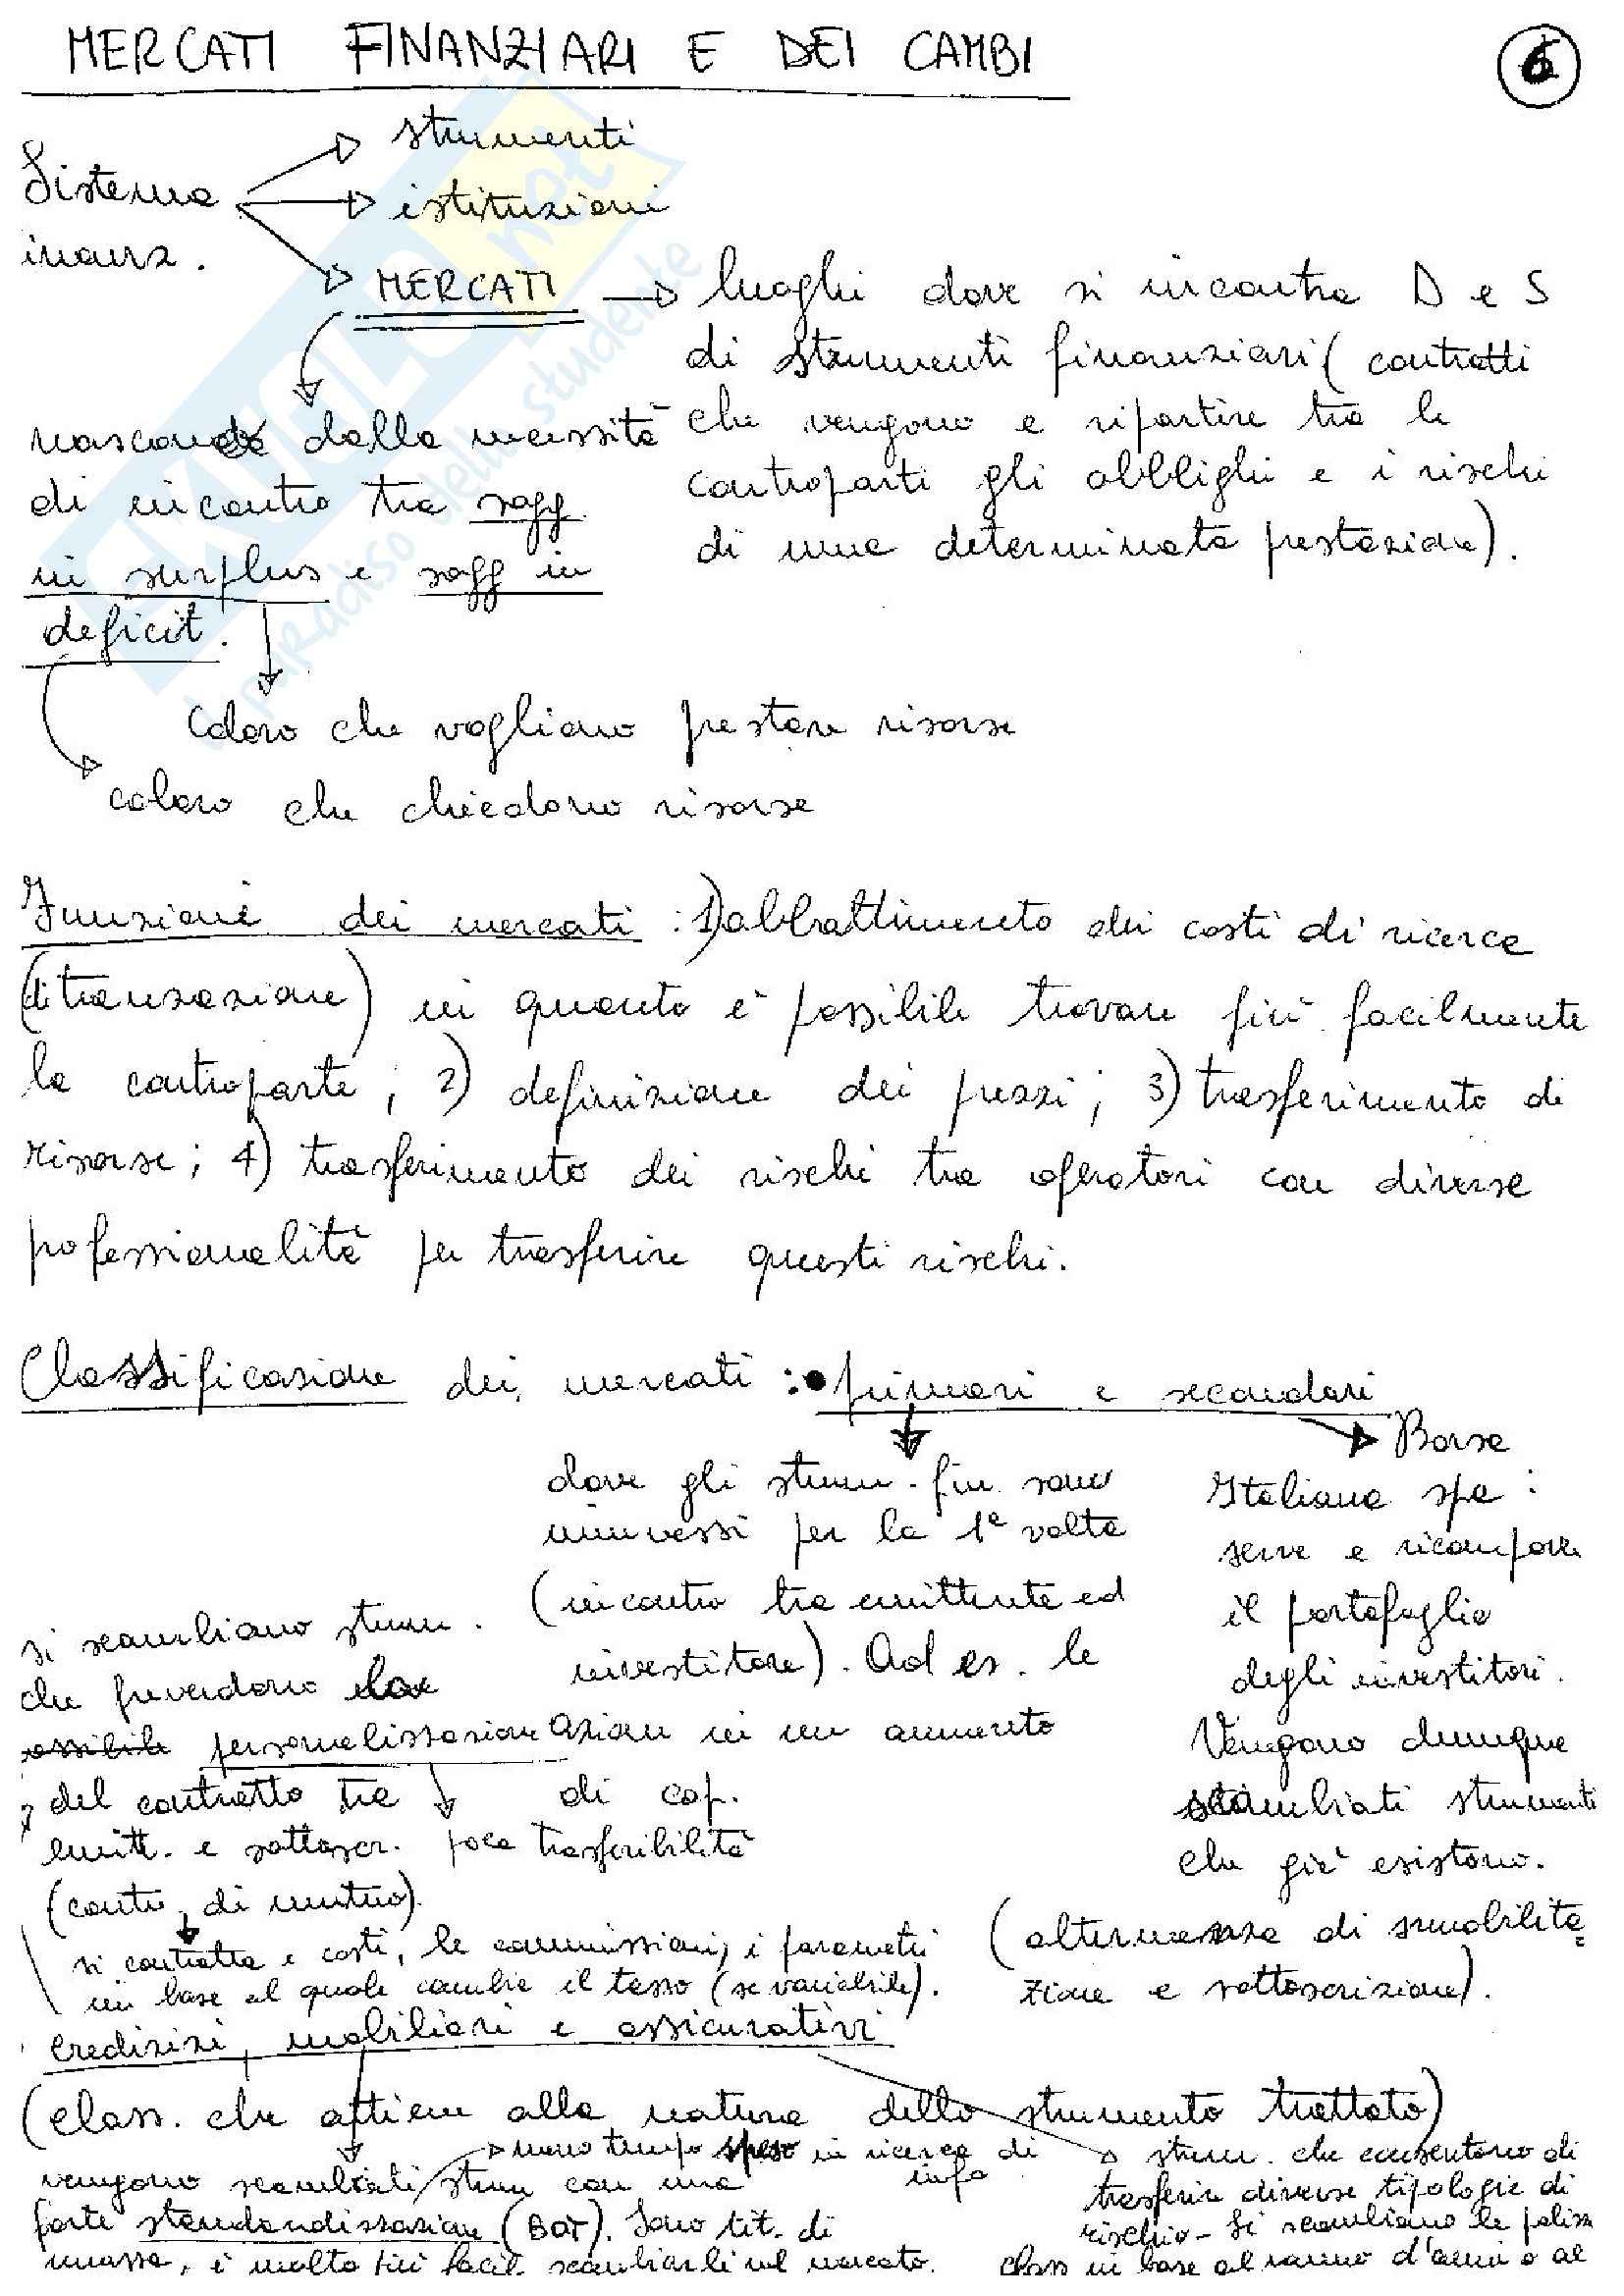 MERCATI FINANZIARI E DEI CAMBI
6
Sistema
inanz.
strumenti
istituzioni
MERCATI
luoghi dove si incontra D e S
di strumenti finanziari ( contratti
che vengono a ripartire tra le
controparti gli obblighi e i rischi
di una determinata prestazione).
nascono dalla necessità
di incontro tra sogg.
in surplus e sogg in
deficit.
Coloro che vogliono prestare risorse
coloro che chiedono risorse
Funzioni dei mercati : 1) abbattimento dei costi di ricerca
(di transazione) in quanto è possibile trovare più facilmente
la controparte ; 2) definizione dei prezzi ; 3) trasferimento di
risorse ; 4) trasferimento dei rischi tra operatori con diverse
professionalità per trasferire questi rischi.
Classificazione dei mercati : • primari e secondari
dove gli strum. fin. sono
immessi per la 1ª volta
(incontro tra emittente ed
investitore). Ad es. le
azioni in un aumento
di cap.
Borsa
Italiana spa :
serve a ricomporre
il portafoglio
degli investitori.
Vengono dunque
scambiati strumenti
che già esistono.
(alternanza di smobilita
zione e sottoscrizione).
si scambiano strum.
che prevedono
personalizzazione
del contratto tra
emitt. e sottoscr.
poca trasferibilità
(contr. di mutuo).
si contratta i costi, le commissioni, i parametri
in base al quale cambia il tasso (se variabile).
Creditizi, mobiliari e assicurativi
(class. che attiene alla natura dello strumento trattato)
meno tempo speso in ricerca di
info
vengono scambiati strum con una
forte standardizzazione (BOT). Sono tit. di
massa, è molto più facil. scambiarli sul mercato.
strum. che consentono di
trasferire diverse tipologie di
rischio - Si scambiano le polizze
class in base al ramo d'anni o al
EXVOLO
noi
il paradiso dello studente